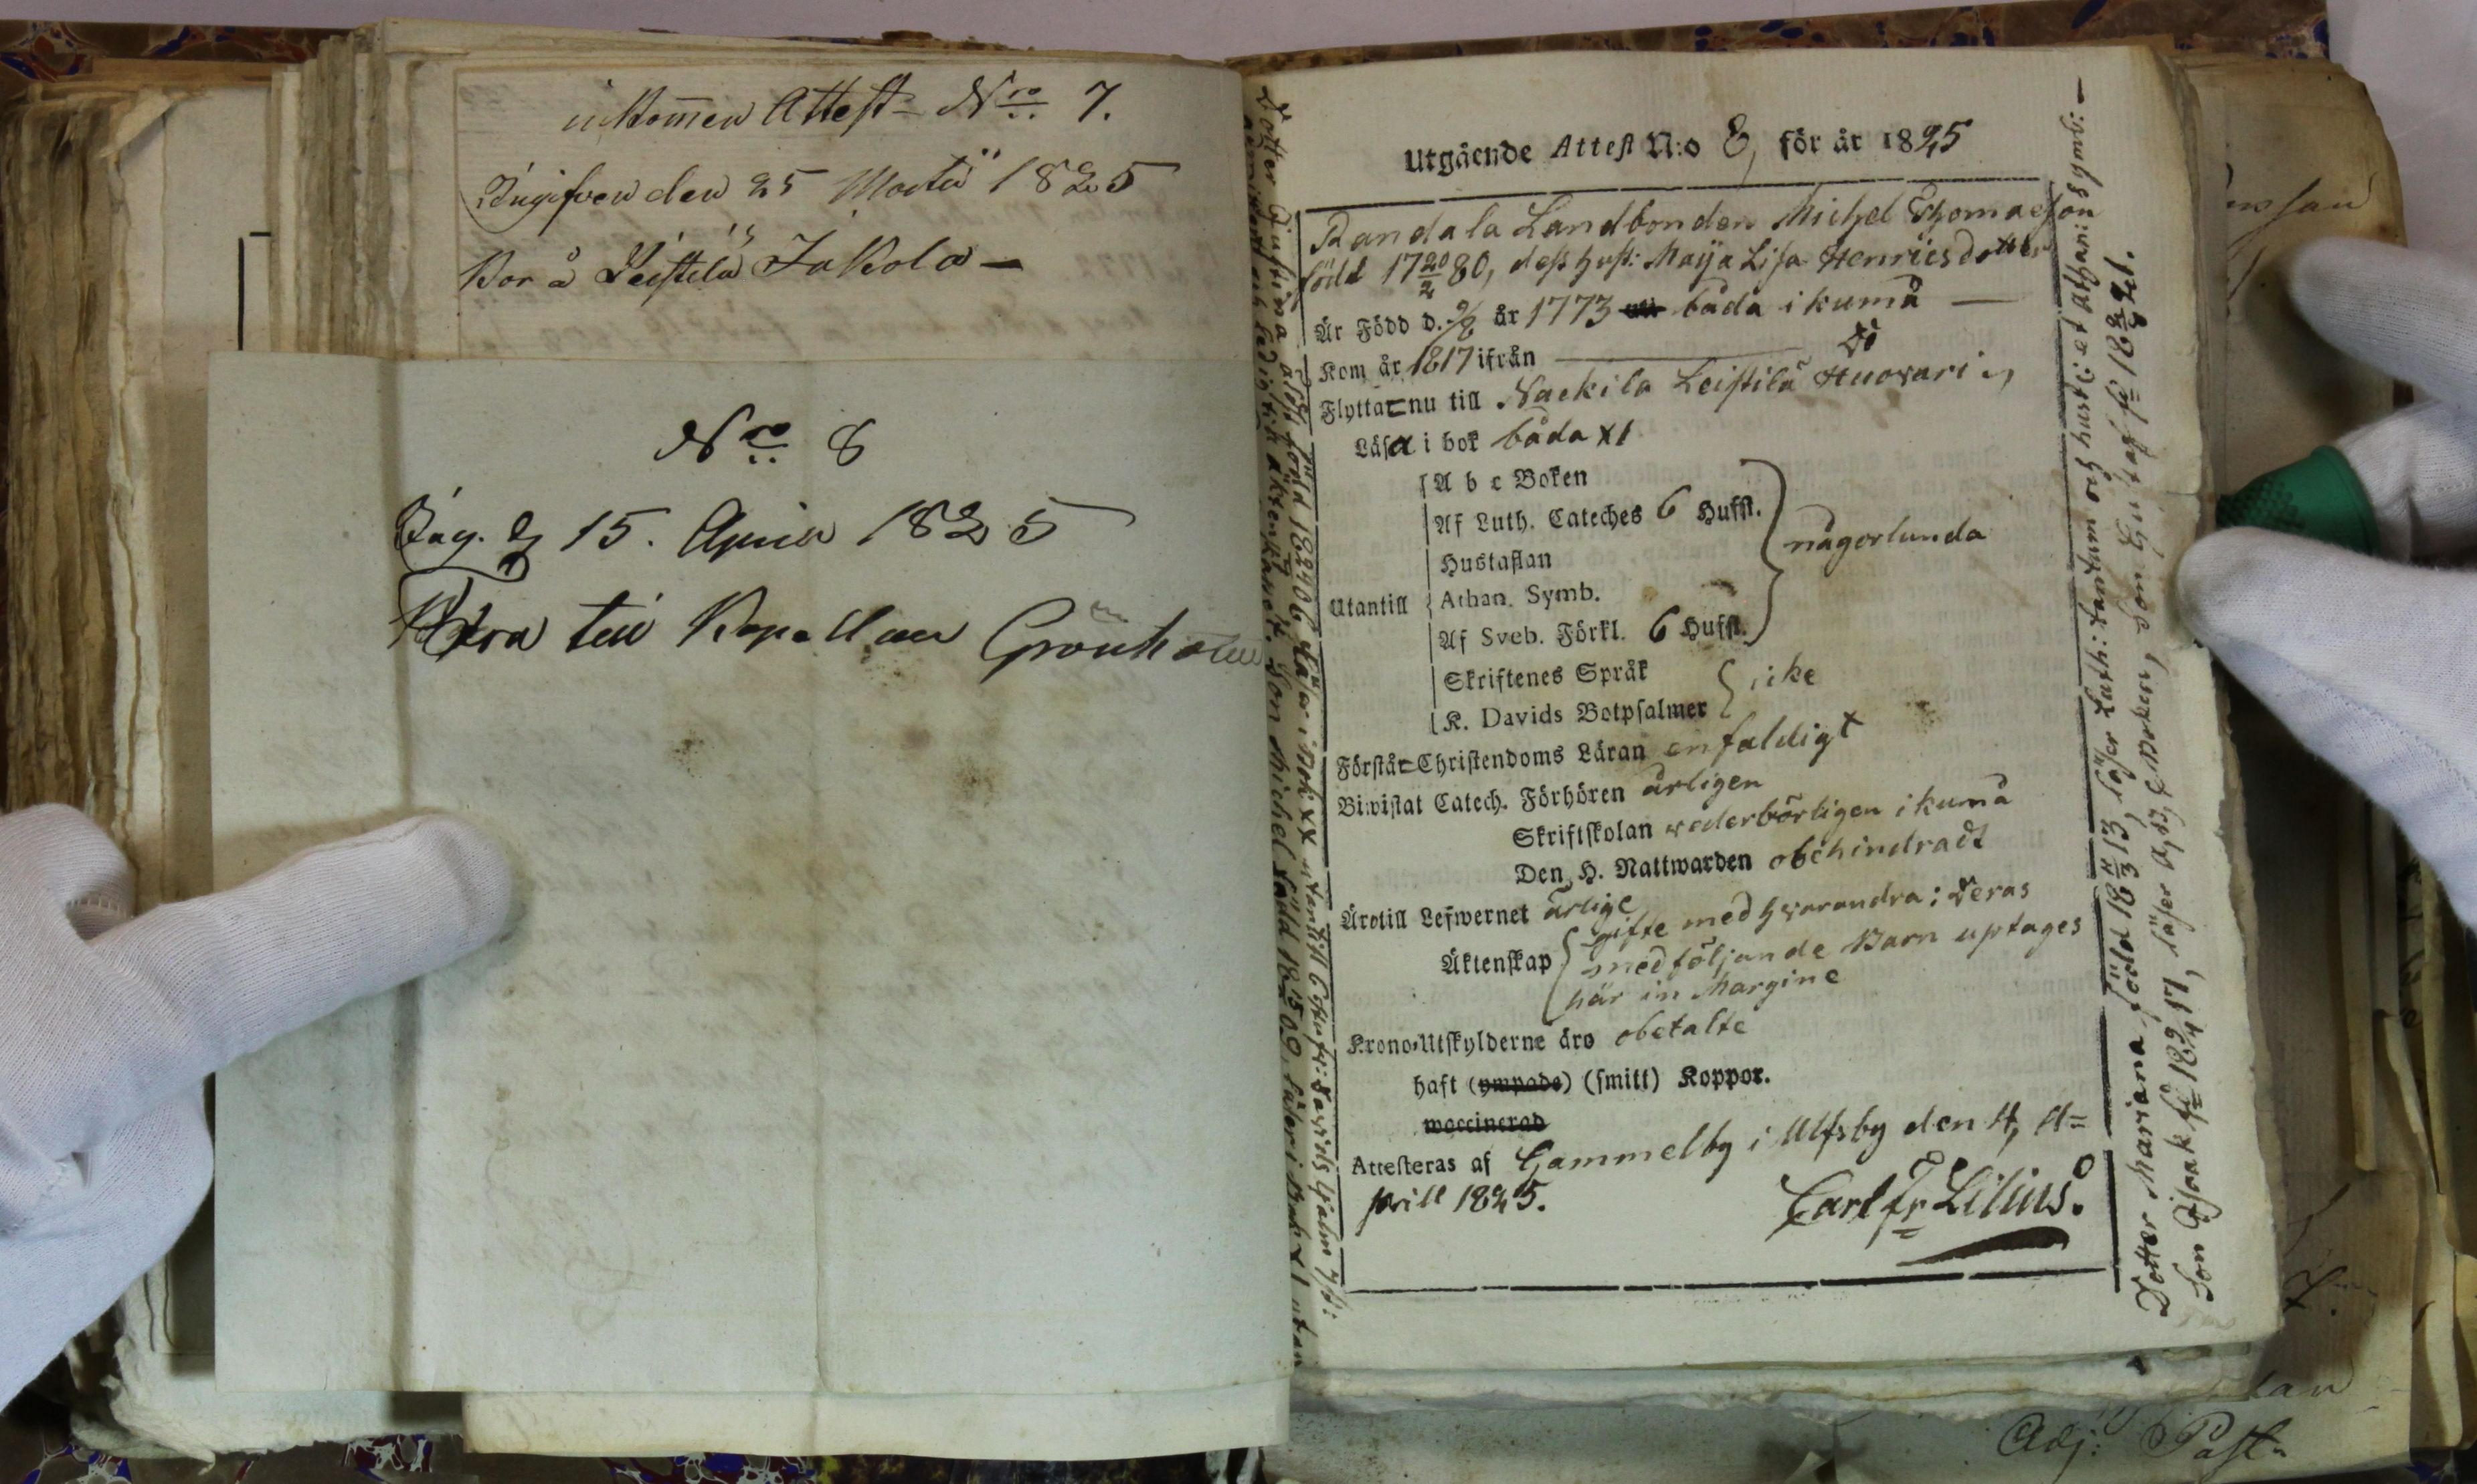 inkommen Attest Nro 7.
Ingifven den 25 Martii 1825
Bor å Leistilä Jakola —
Nro 8
Ing. d. 15. April 1825
till Kapellan Grönholm
Utgående Attest N:o 8, för år 1825
Landbonden Michel Thomasson
född 17 20/2 80, dess hust: Maija Lisa Henricsdotter
Är Född d. 9/8 år 1773 båda i kumå —
Kom år 1817 ifrån — do
Flyttar nu till Nackila Leistilä Huovari
Läsa i bok båda X1
A b c Boken
Af Luth. Cateches 6 Hufst.
Hustaflan
någorlunda
Utantill
Athan. Symb.
Af Sveb. Förkl. 6 Hufst.
Skriftenes Språk
icke
K. Davids Botpsalmer
Förstår Christendoms Läran enfaldigt
Biwistat Catech. Förhören årligen
Skriftskolan vederbörligen i kumå
Den H. Nattwarden obehindradt
Äro till Lefwernet ärlige
Äktenskap gifte med hvarandra; deras
medföljande Barn uptages
här in Margine
Krono-Utskylderne äro obetalte
haft (ympade) (smitt) Koppor.
waccinerad
Attesteras af Gammelby i Ulfsby den 4, A=
prill 1825.
Carl Fr Lilius.
Dotter Mariana född 18 11/3 13, läser Luth: tantum och hust: et Athani Symb: —
Son Isaak fd 18 9/4 17, läser a, b, c Boken, Son Gustaf fd 18 2/8 21.
Dotter Justina
Son Michel född 18 15/ 09, läser i Bok X1 utan
Adj: Past.